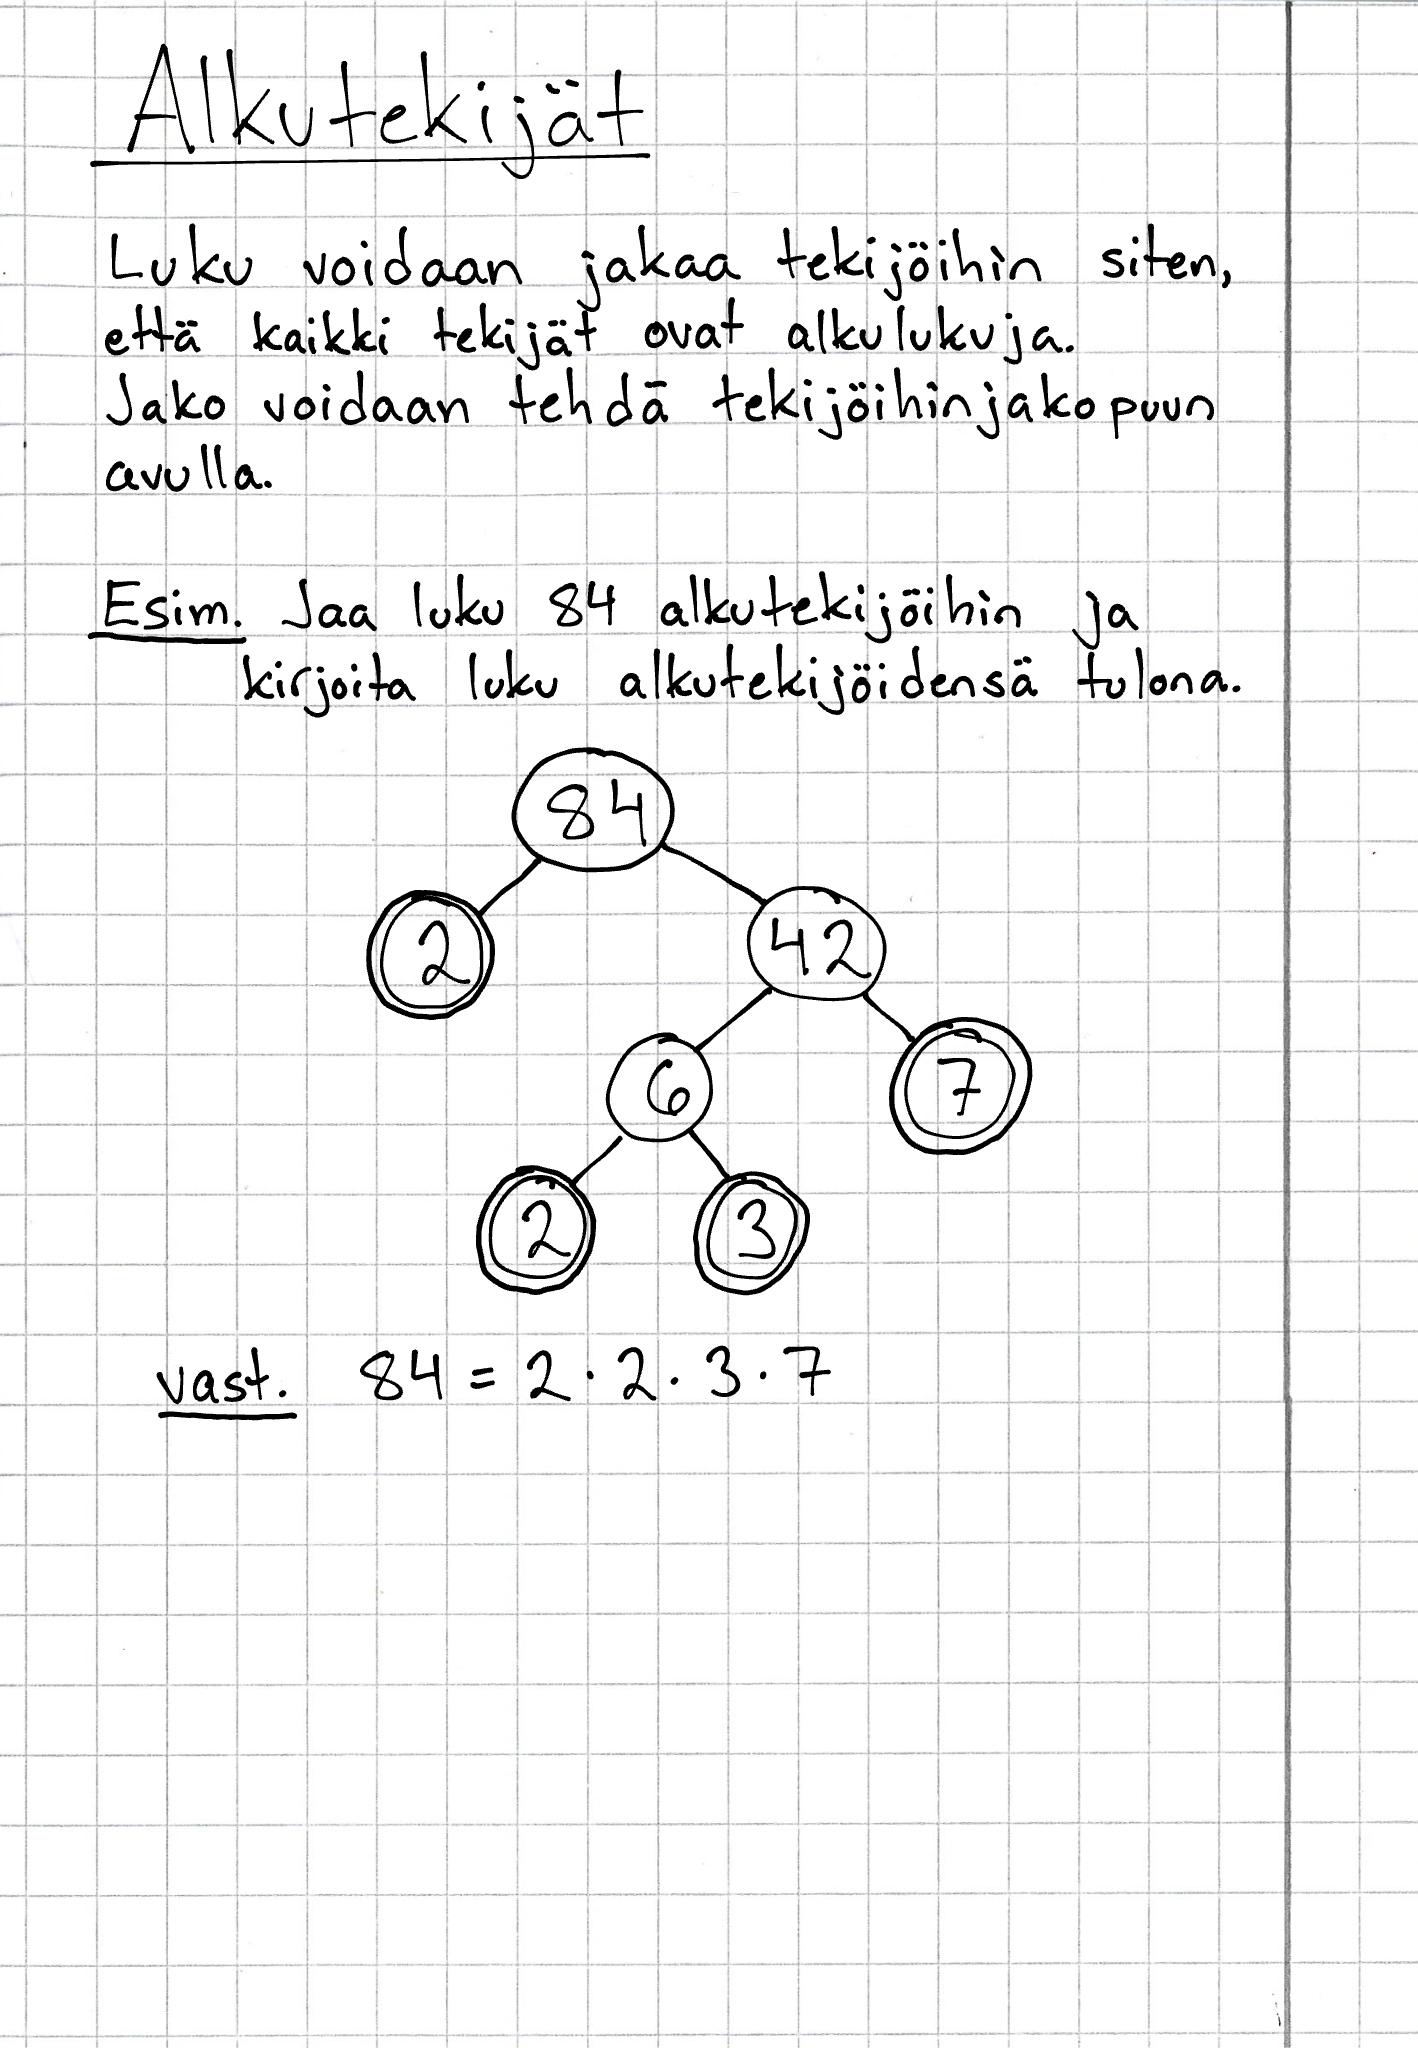 Alkutekijät
Luku voidaan jakaa tekijöihin siten,
että kaikki tekijät ovat alkulukuja.
Jako voidaan tehdä tekijöihinjakopuun
avulla.
Esim. Jaa luku 84 alkutekijöihin ja
kirjoita luku alkutekijöidensä tulona.
84
2 42
6 7
2 3
vast. 84 = 2 · 2 · 3 · 7